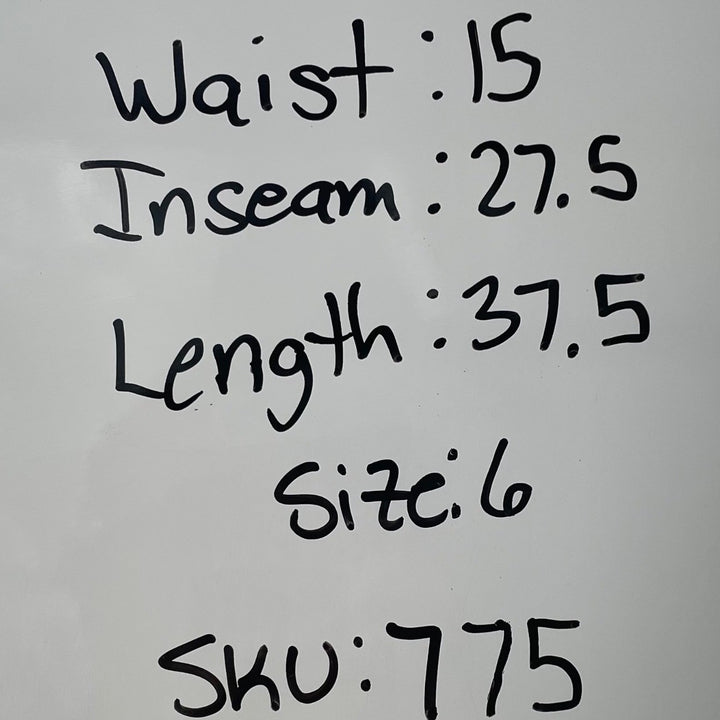 Waist:15
Inseam:27.5
Length:37.5
Size:6
SKU:775